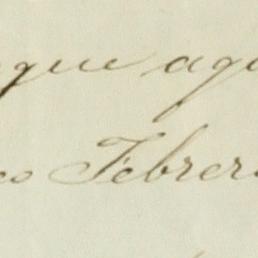 que aqu
co Febrero